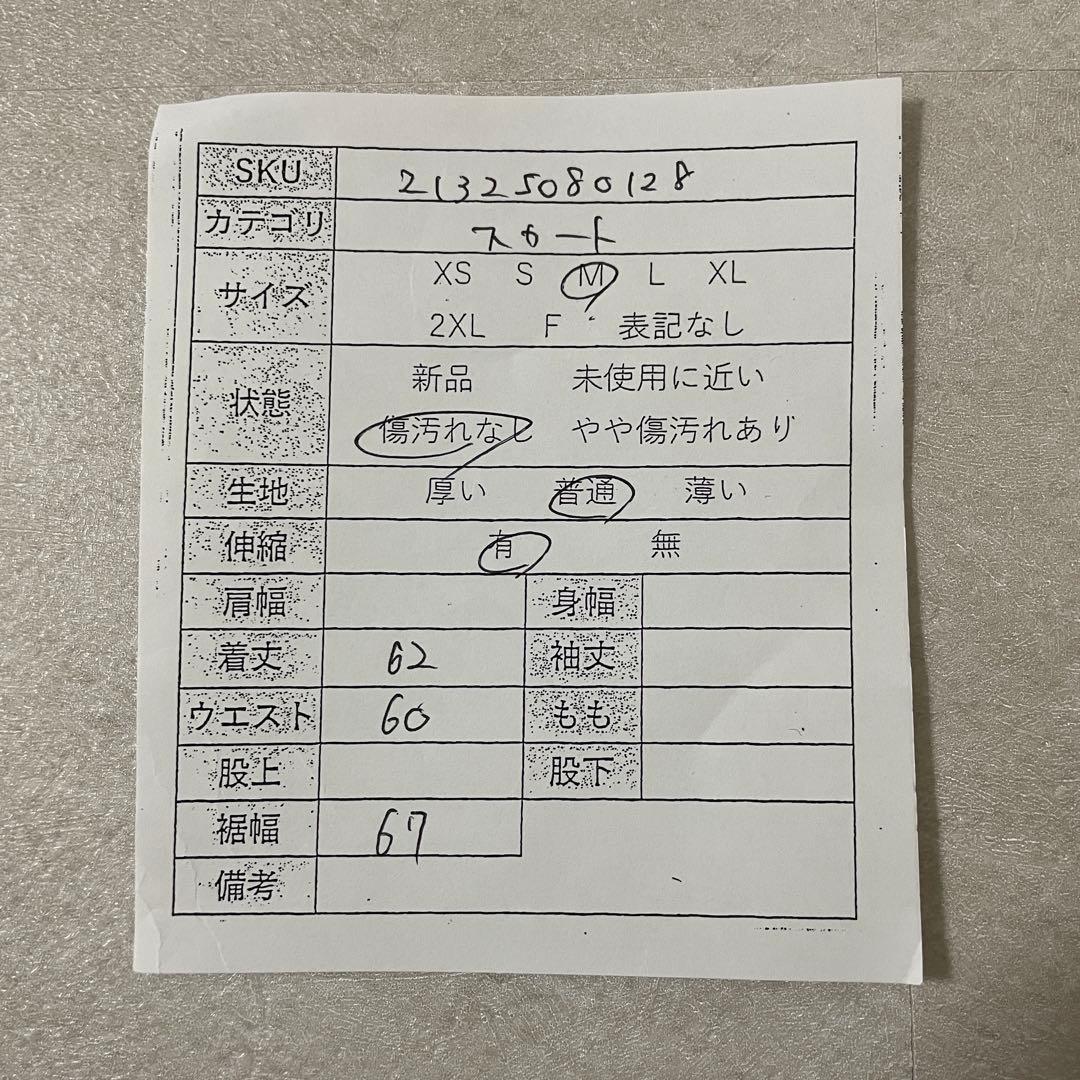 SKU 21325080128
カテゴリ スカート
サイズ XS S M L XL
2XL F 表記なし
状態 新品 未使用に近い
傷汚れなし やや傷汚れあり
生地 厚い 普通 薄い
伸縮 有 無
肩幅 身幅
着丈 62 袖丈
ウエスト 60 もも
股上 股下
裾幅 67
備考